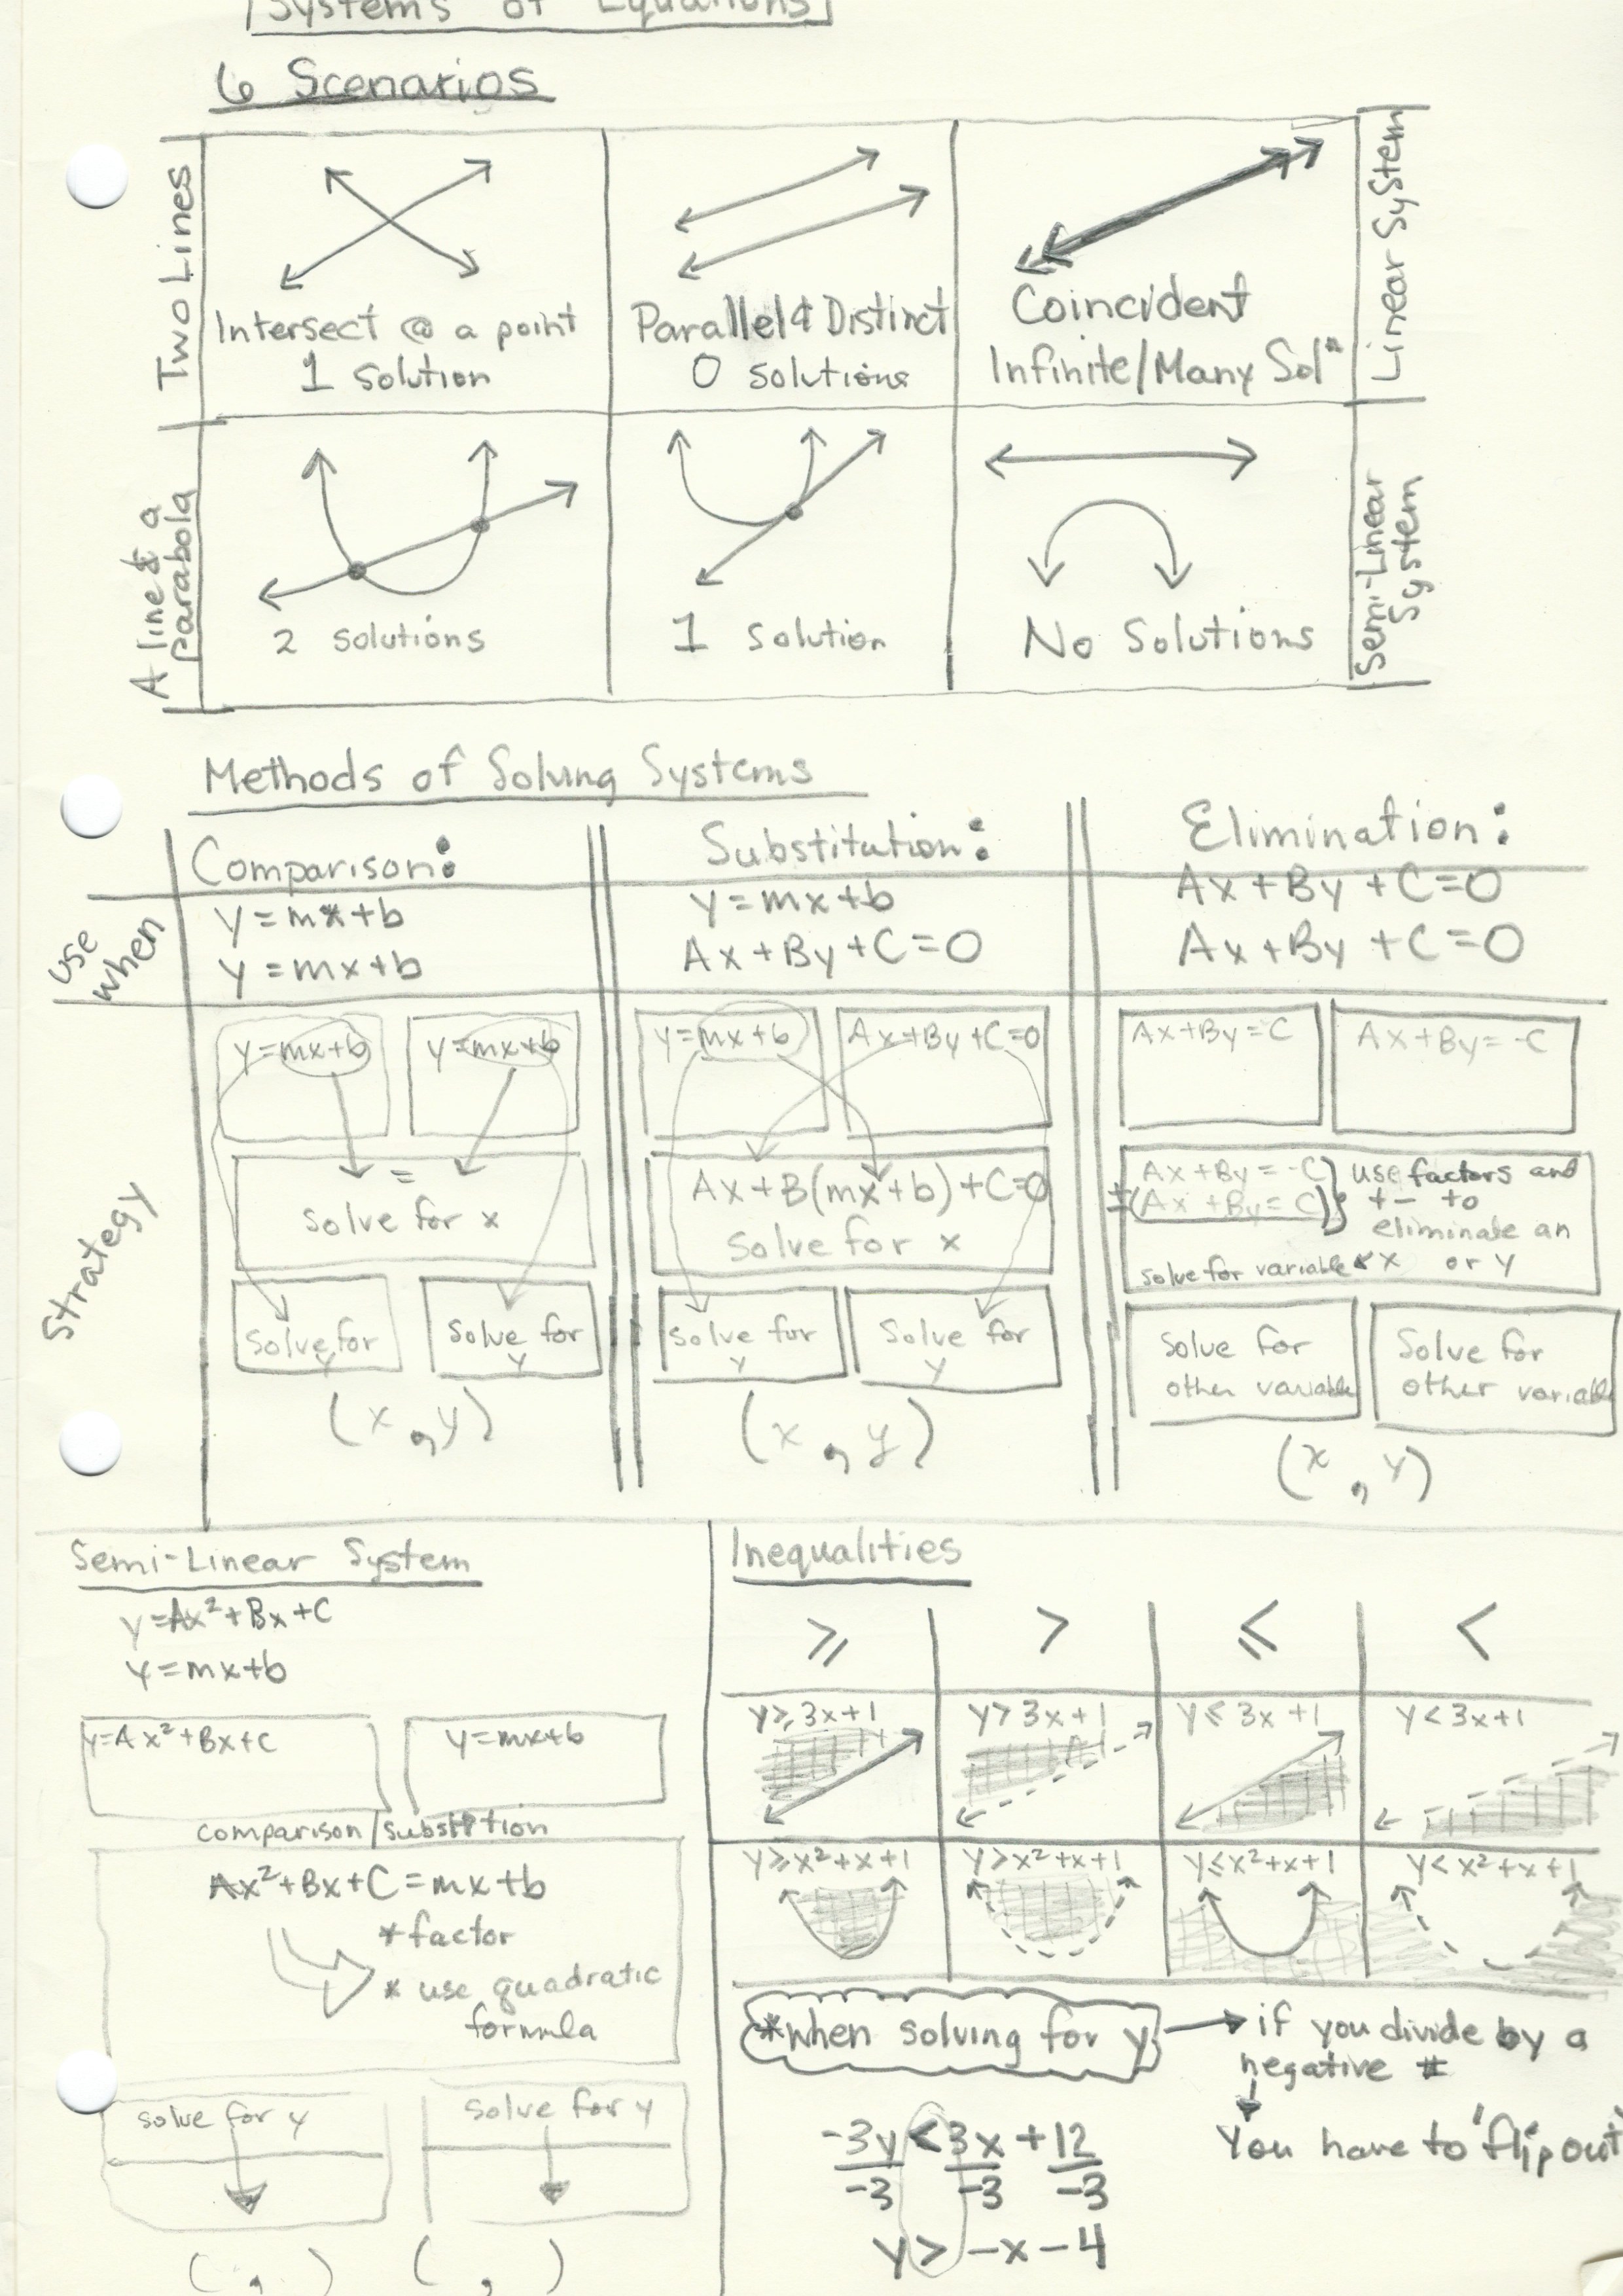 Systems of Equations
6 Scenarios
Two Lines
Intersect @ a point
1 solution
Parallel & Distinct
0 solutions
Coincident
Infinite/Many Sol"
Linear System
A line & a
Parabola
2 solutions
1 solution
No Solutions
Semi-Linear
System
Methods of Solving Systems
Comparison:
Substitution:
Elimination:
use
when
y=mx+b
y=mx+b
y=mx+b
Ax+By+C=0
Ax+By+C=0
Ax+By+C=0
Strategy
y=mx+b
y=mx+b
=
solve for x
solve for
y
solve for
y
(x,y)
y=mx+b
Ax+By+C=0
Ax+B(mx+b)+C=0
solve for x
solve for
y
solve for
y
(x,y)
Ax+By=C
Ax+By=-C
Ax+By=-C
±(Ax+By=C)
use factors and
+- to
eliminate an
x or y
solve for variable
solve for
other variable
solve for
other variable
(x,y)
Semi-Linear System
y=Ax²+Bx+C
y=mx+b
y=Ax²+Bx+C
y=mx+b
comparison/substition
Ax²+Bx+C=mx+b
*factor
* use quadratic
formula
solve for y
solve for y
( , )
( , )
Inequalities
≥
>
≤
<
y≥3x+1
y>3x+1
y≤3x+1
y<3x+1
y≥x²+x+1
y>x²+x+1
y≤x²+x+1
y<x²+x+1
*when solving for y
if you divide by a
negative #
You have to 'flip out'
-3y<3x+12
-3 -3 -3
y>-x-4